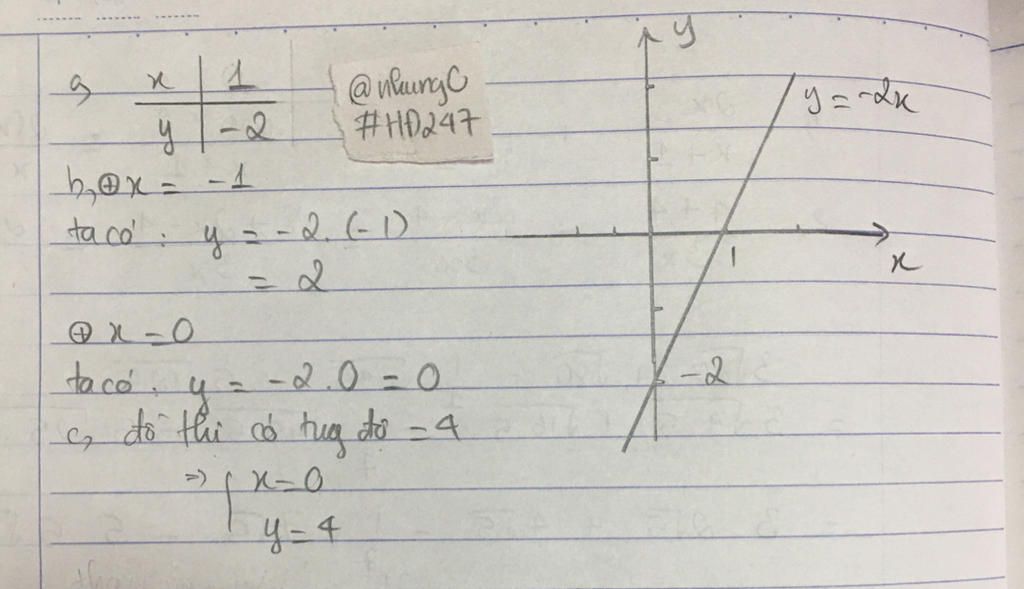 a, x | 1
y | -2
@nhungC
#HD247
b, ⊕ x = -1
ta có: y = -2. (-1)
= 2
⊕ x = 0
ta có: y = -2.0 = 0
c, đồ thị có tug độ = 4
=> { x = 0
y = 4
y
y = -2x
1
x
-2